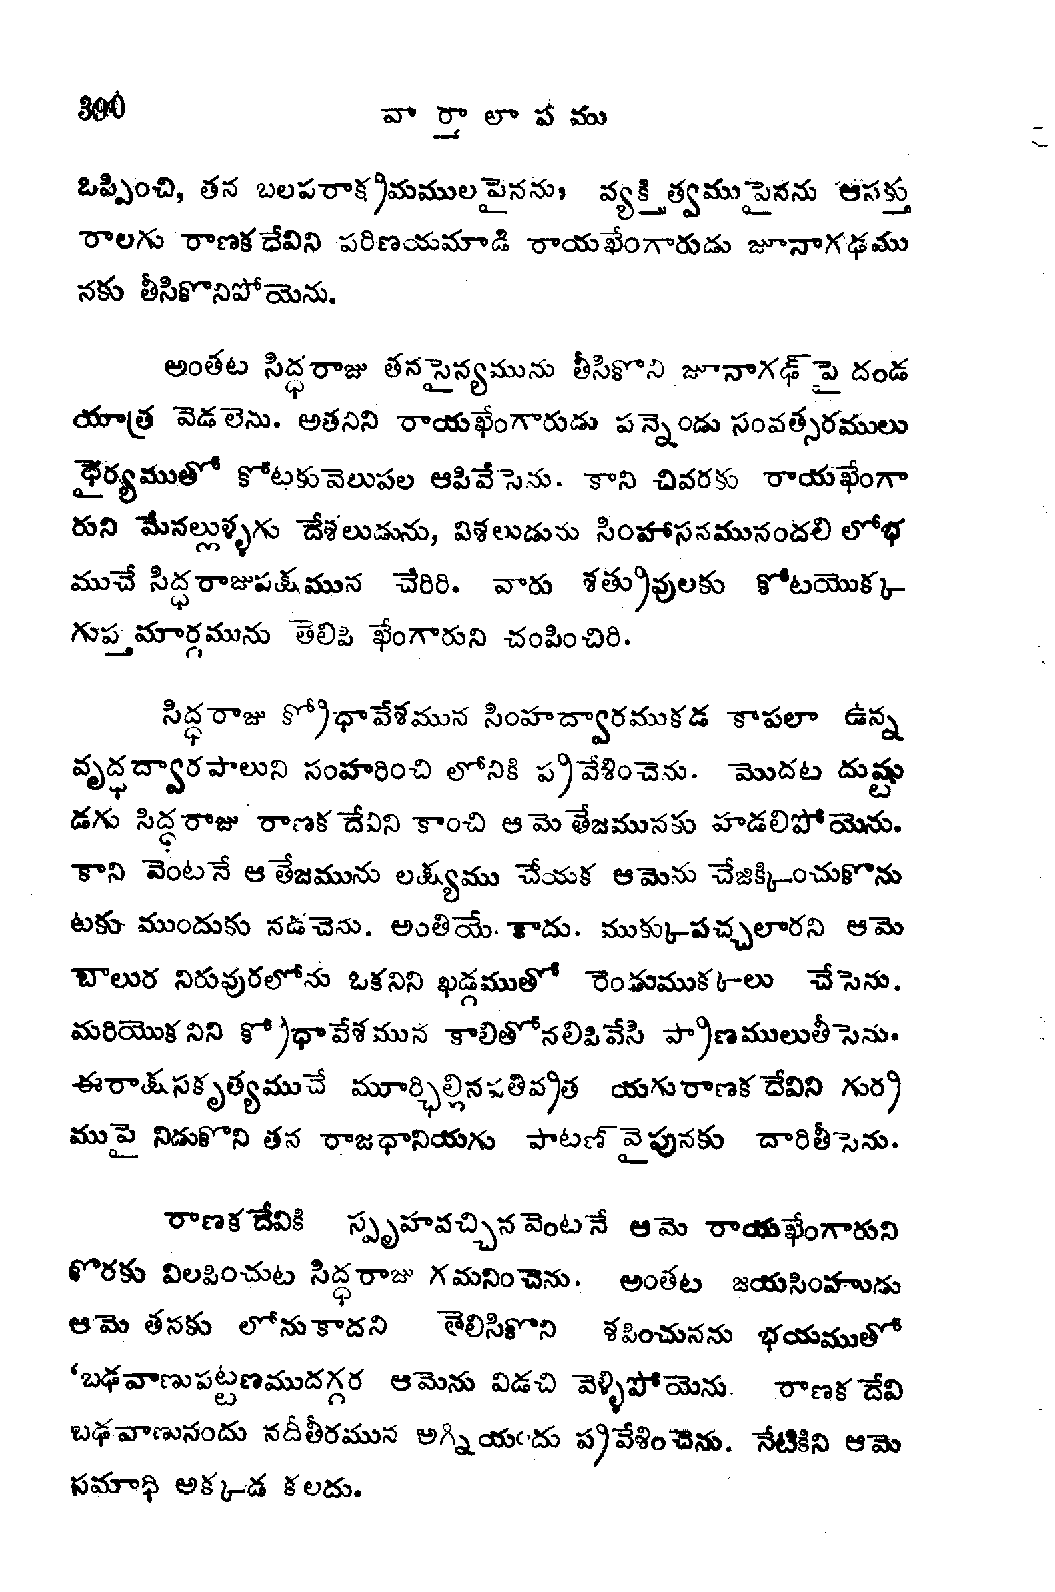 390
వార్తాలాపము
ఒప్పించి, తన బలపరాక్రమములపైనను, వ్యక్తిత్వముపైనను ఆసక్తు
రాలగు రాణకదేవిని పరిణయమాడి రాయఖేంగారుడు జూనాగఢము
నకు తీసికొనిపోయెను.
అంతట సిద్ధరాజు తనసైన్యమును తీసికొని జూనాగఢ్‌పై దండ
యాత్ర వెడలెను. అతనిని రాయఖేంగారుడు పన్నెండు సంవత్సరములు
ధైర్యముతో కోటకువెలుపల ఆపివేసెను. కాని చివరకు రాయఖేంగా
రుని మేనల్లుళ్ళగు దేశలుడును, విశలుడును సింహాసనమునందలి లోభ
ముచే సిద్ధరాజుపక్షమున చేరిరి. వారు శత్రువులకు కోటయొక్క
గుప్తమార్గమును తెలిపి ఖేంగారుని చంపించిరి.
సిద్ధరాజు క్రోధావేశమున సింహద్వారముకడ కాపలా ఉన్న
వృద్ధద్వారపాలుని సంహరించి లోనికి ప్రవేశించెను. మొదట దుష్టు
డగు సిద్ధరాజు రాణకదేవిని కాంచి ఆమెతేజమునకు హడలిపోయెను.
కాని వెంటనే ఆతేజమును లక్ష్యము చేయక ఆమెను చేజిక్కించుకొను
టకు ముందుకు నడచెను. అంతియే కాదు. ముక్కుపచ్చలారని ఆమె
బాలుర నిరువురలోను ఒకనిని ఖడ్గముతో రెండుముకకలు చేసెను.
మరియొకనిని క్రోధావేశమున కాలితోనలిపివేసి ప్రాణములుతీసెను.
ఈరాక్షసకృత్యముచే మూర్ఛిల్లినపతివ్రత యగురాణకదేవిని గుర్ర
ముపై నిడుకొని తన రాజధానియగు పాటణ్‌వైపునకు దారితీసెను.
రాణకదేవికి స్పృహవచ్చినవెంటనే ఆమె రాయఖేంగారుని
కొరకు విలపించుట సిద్ధరాజు గమనించెను. అంతట జయసింహుడు
ఆమె తనకు లోనుకాదని తెలిసికొని శపించునను భయముతో
‘బఢవాణుపట్టణముదగ్గర ఆమెను విడచి వెళ్ళిపోయెను. రాణకదేవి
బఢవాణునందు నదీతీరమున అగ్నియందు ప్రవేశించెను. నేటికిని ఆమె
సమాధి అక్కడ కలదు.